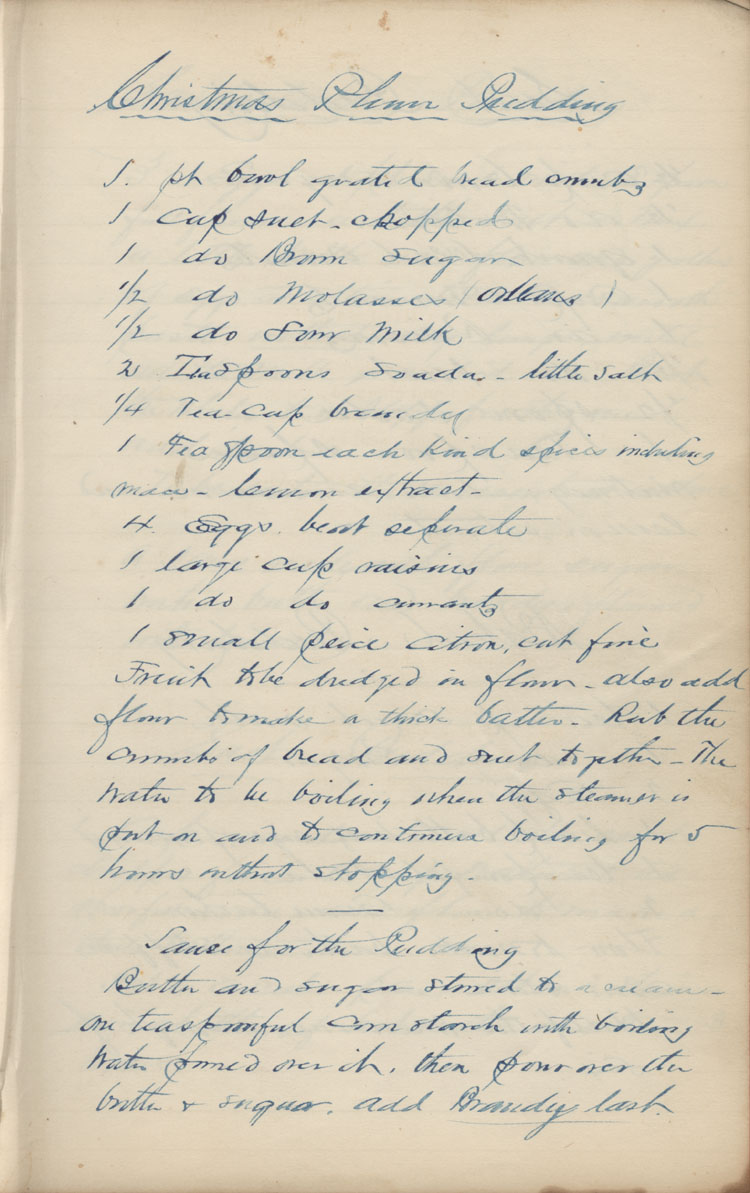 Christmas Plum Pudding
1. pt bowl grated bread crumbs
1 Cup suet - chopped
1 do Brown Sugar
1/2 do Molasses (Orleans)
1/2 do Sour Milk
2 Teaspoons soada. - little salt
1/4 Tea-cup brandy
1 Tea spoon each Kind spices including
mace - lemon extract -
4 Eggs beat seperate
1 large cup raisins
1 do do currants
1 small peice citron, cut fine
Fruit to be dredged in flour - also add
flour to make a thick batter - Rub the
crumbs of bread and suet together - The
water to be boiling when the steamer is
put on and to continue boiling for 5
hours without stopping.
Sauce for the Pudding
Butter and sugar stirred to a cream -
one teaspoonful corn starch with boiling
water poured over it, then pour over the
butter & suguar. add Brandy last.